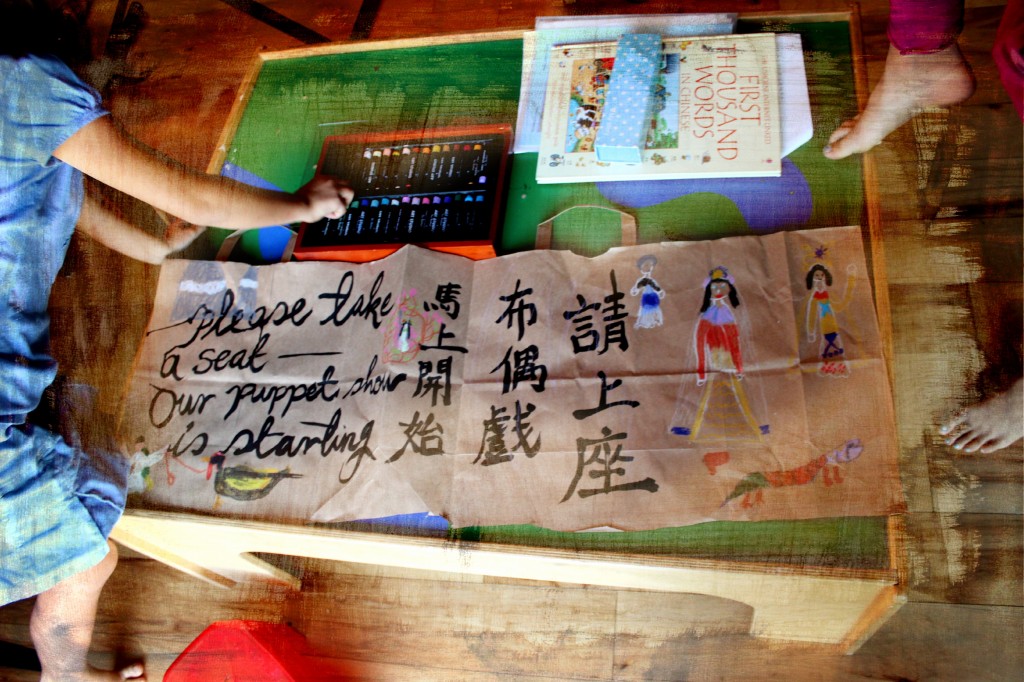 FIRST
THOUSAND
WORDS
IN CHINESE
Please take
a seat —
Our puppet show
is starting
請上座
布偶戲
馬上開始